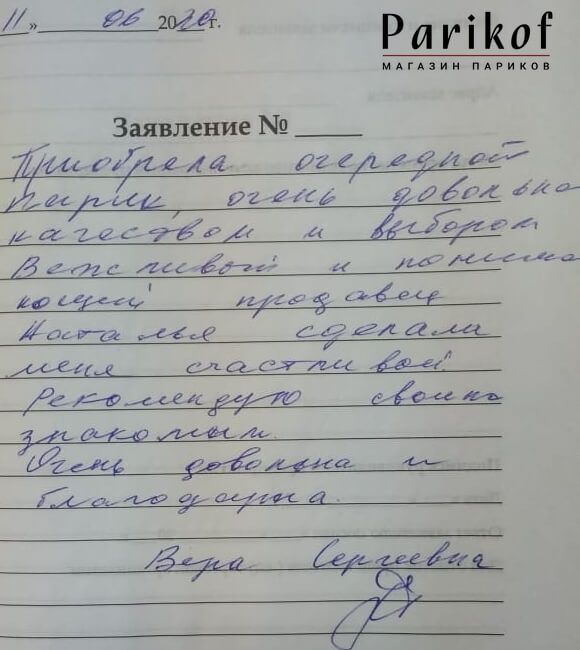 11 » 06 2020 г.
Parikof
МАГАЗИН ПАРИКОВ
Заявление №
Приобрела очередной
парик, очень довольна
качеством и выбором
Вежливый и понима
ющий продавец
Наталья сделали
меня счастливой.
Рекомендую своим
знакомым.
Очень довольна и
благодарна.
Вера Сергеевна